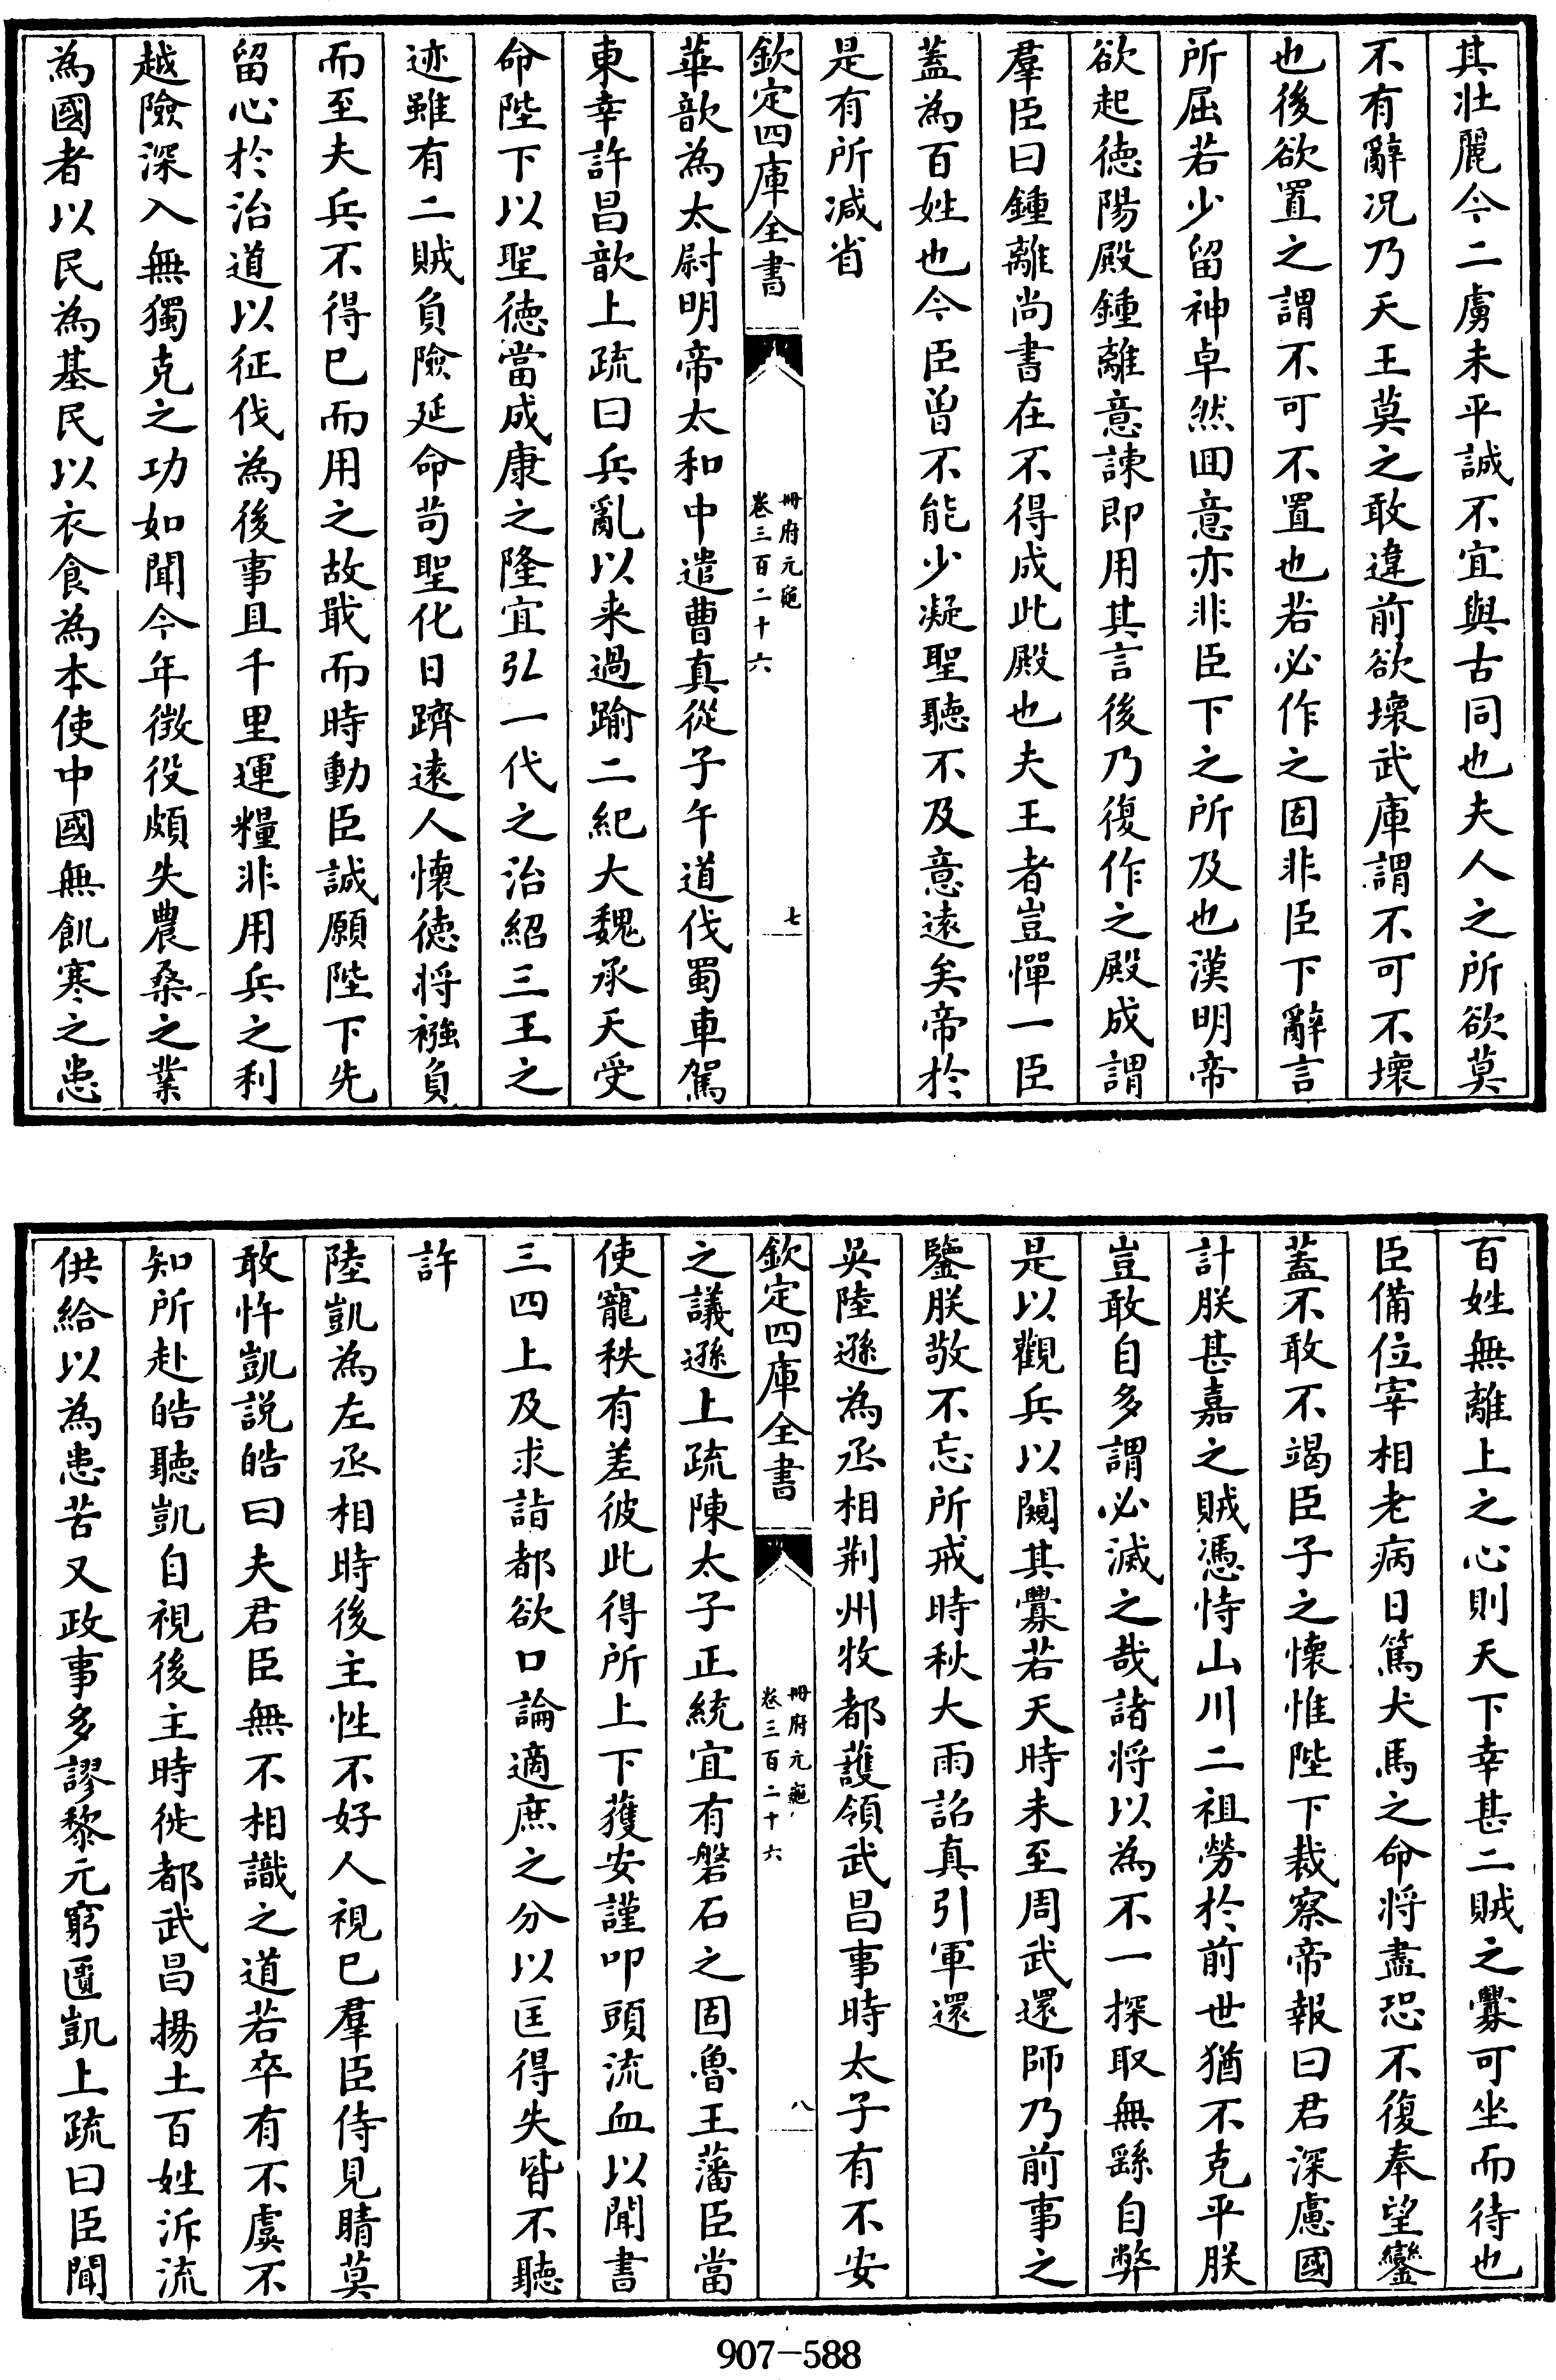 其壯麗今二虜未平誠不宜與古同也夫人之所欲莫
不有辭况乃天王莫之敢違前欲壞武庫謂不可不壞
也後欲置之謂不可不置也若必作之固非臣下辭言
所屈若少留神卓然囬意亦非臣下之所及也漢明帝
欲起徳陽殿鍾離意諌即用其言後乃復作之殿成謂
羣臣曰鍾離尚書在不得成此殿也夫王者豈憚一臣
蓋為百姓也今臣曽不能少凝聖聽不及意遠矣帝於
是有所减省
欽定四庫全書
冊府元龜
卷三百二十六
七
華歆為太尉明帝太和中遣曹真從子午道伐蜀車駕
東幸許昌歆上疏曰兵亂以来過踰二紀大魏承天受
命陛下以聖徳當成康之隆宜弘一代之治紹三王之
迹雖有二賊負險延命茍聖化日躋逺人懷徳将襁負
而至夫兵不得已而用之故戢而時動臣誠願陛下先
留心於治道以征伐為後事且千里運糧非用兵之利
越險深入無獨克之功如聞今年徴役頗失農桑之業
為國者以民為基民以衣食為本使中國無飢寒之患
百姓無離上之心則天下幸甚二賊之釁可坐而待也
臣備位宰相老病日篤犬馬之命将盡恐不復奉望鑾
蓋不敢不竭臣子之懷惟陛下裁察帝報曰君深慮國
計朕甚嘉之賊憑恃山川二祖勞於前世猶不克平朕
豈敢自多謂必滅之哉諸将以為不一探取無繇自弊
是以觀兵以闚其釁若天時未至周武還師乃前事之
鑒朕敬不忘所戒時秋大雨詔真引軍還
吳陸遜為丞相荆州牧都護領武昌事時太子有不安
欽定四庫全書
冊府元龜
卷三百二十六
八
之議遜上疏陳太子正統宜有磐石之固魯王藩臣當
使寵秩有差彼此得所上下獲安謹叩頭流血以聞書
三四上及求詣都欲口論適庶之分以匡得失皆不聽
許
陸凱為左丞相時後主性不好人視已羣臣侍見睛莫
敢忤凱説皓曰夫君臣無不相識之道若卒有不虞不
知所赴皓聽凱自視後主時徙都武昌揚土百姓泝流
供給以為患苦又政事多謬黎元窮匱凱上疏曰臣聞
907-588